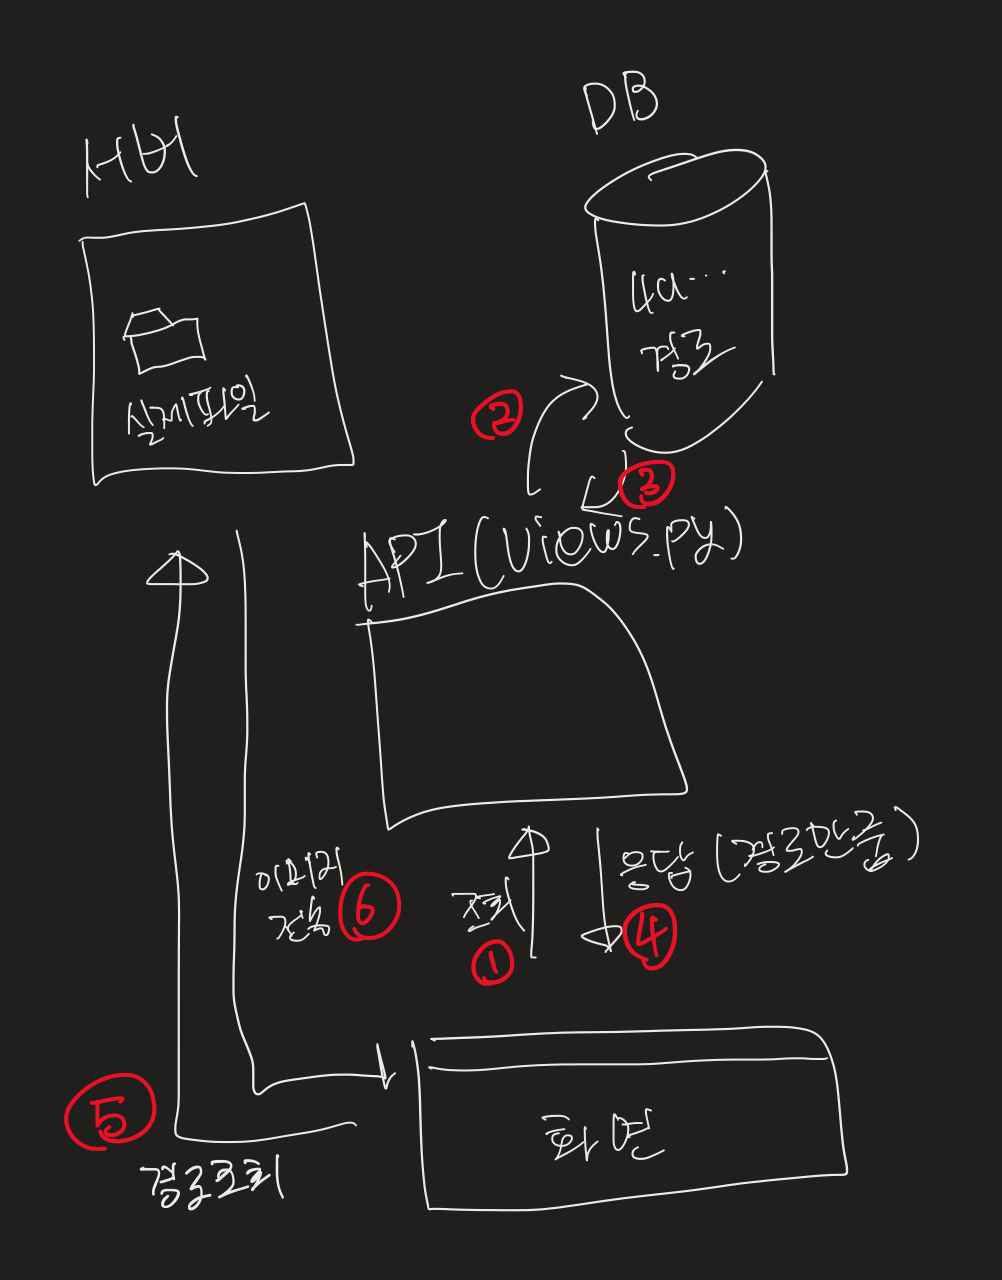 서버
DB
실제파일
경로
②
③
API (views.py)
응답 (경로만줌)
이미지
전송
⑥
조회
①
④
⑤
경로조회
화면